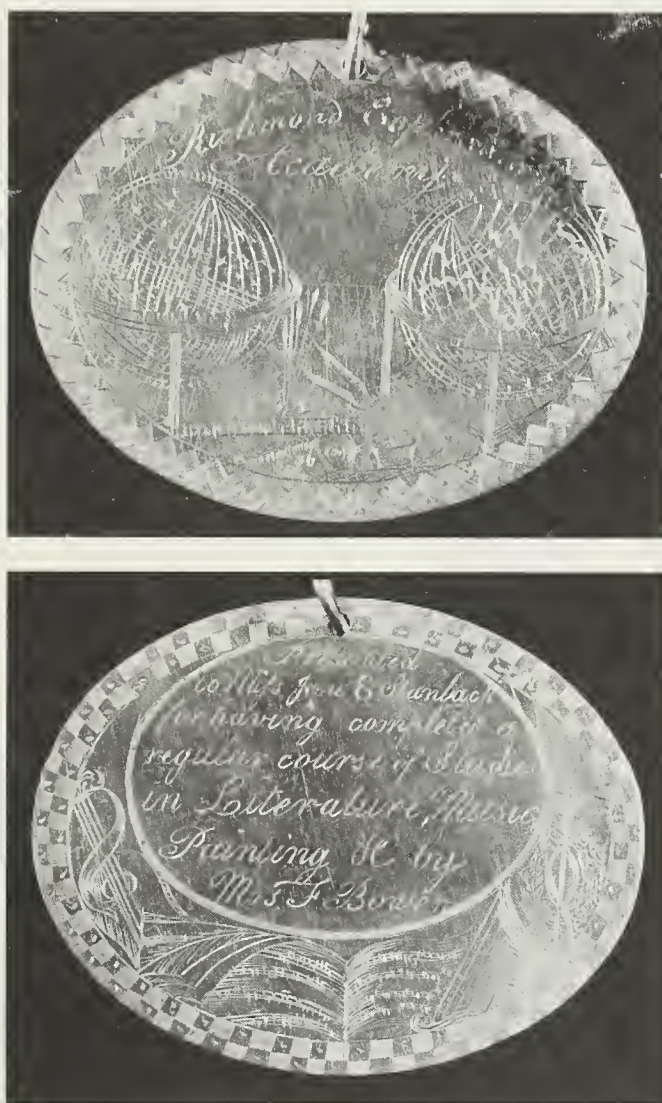 Richmond
Academy
Presented
to Miss Jane E
for having completed a
regular course of Studies
in Literature, Music
Painting &C by
Mrs. F Bowen